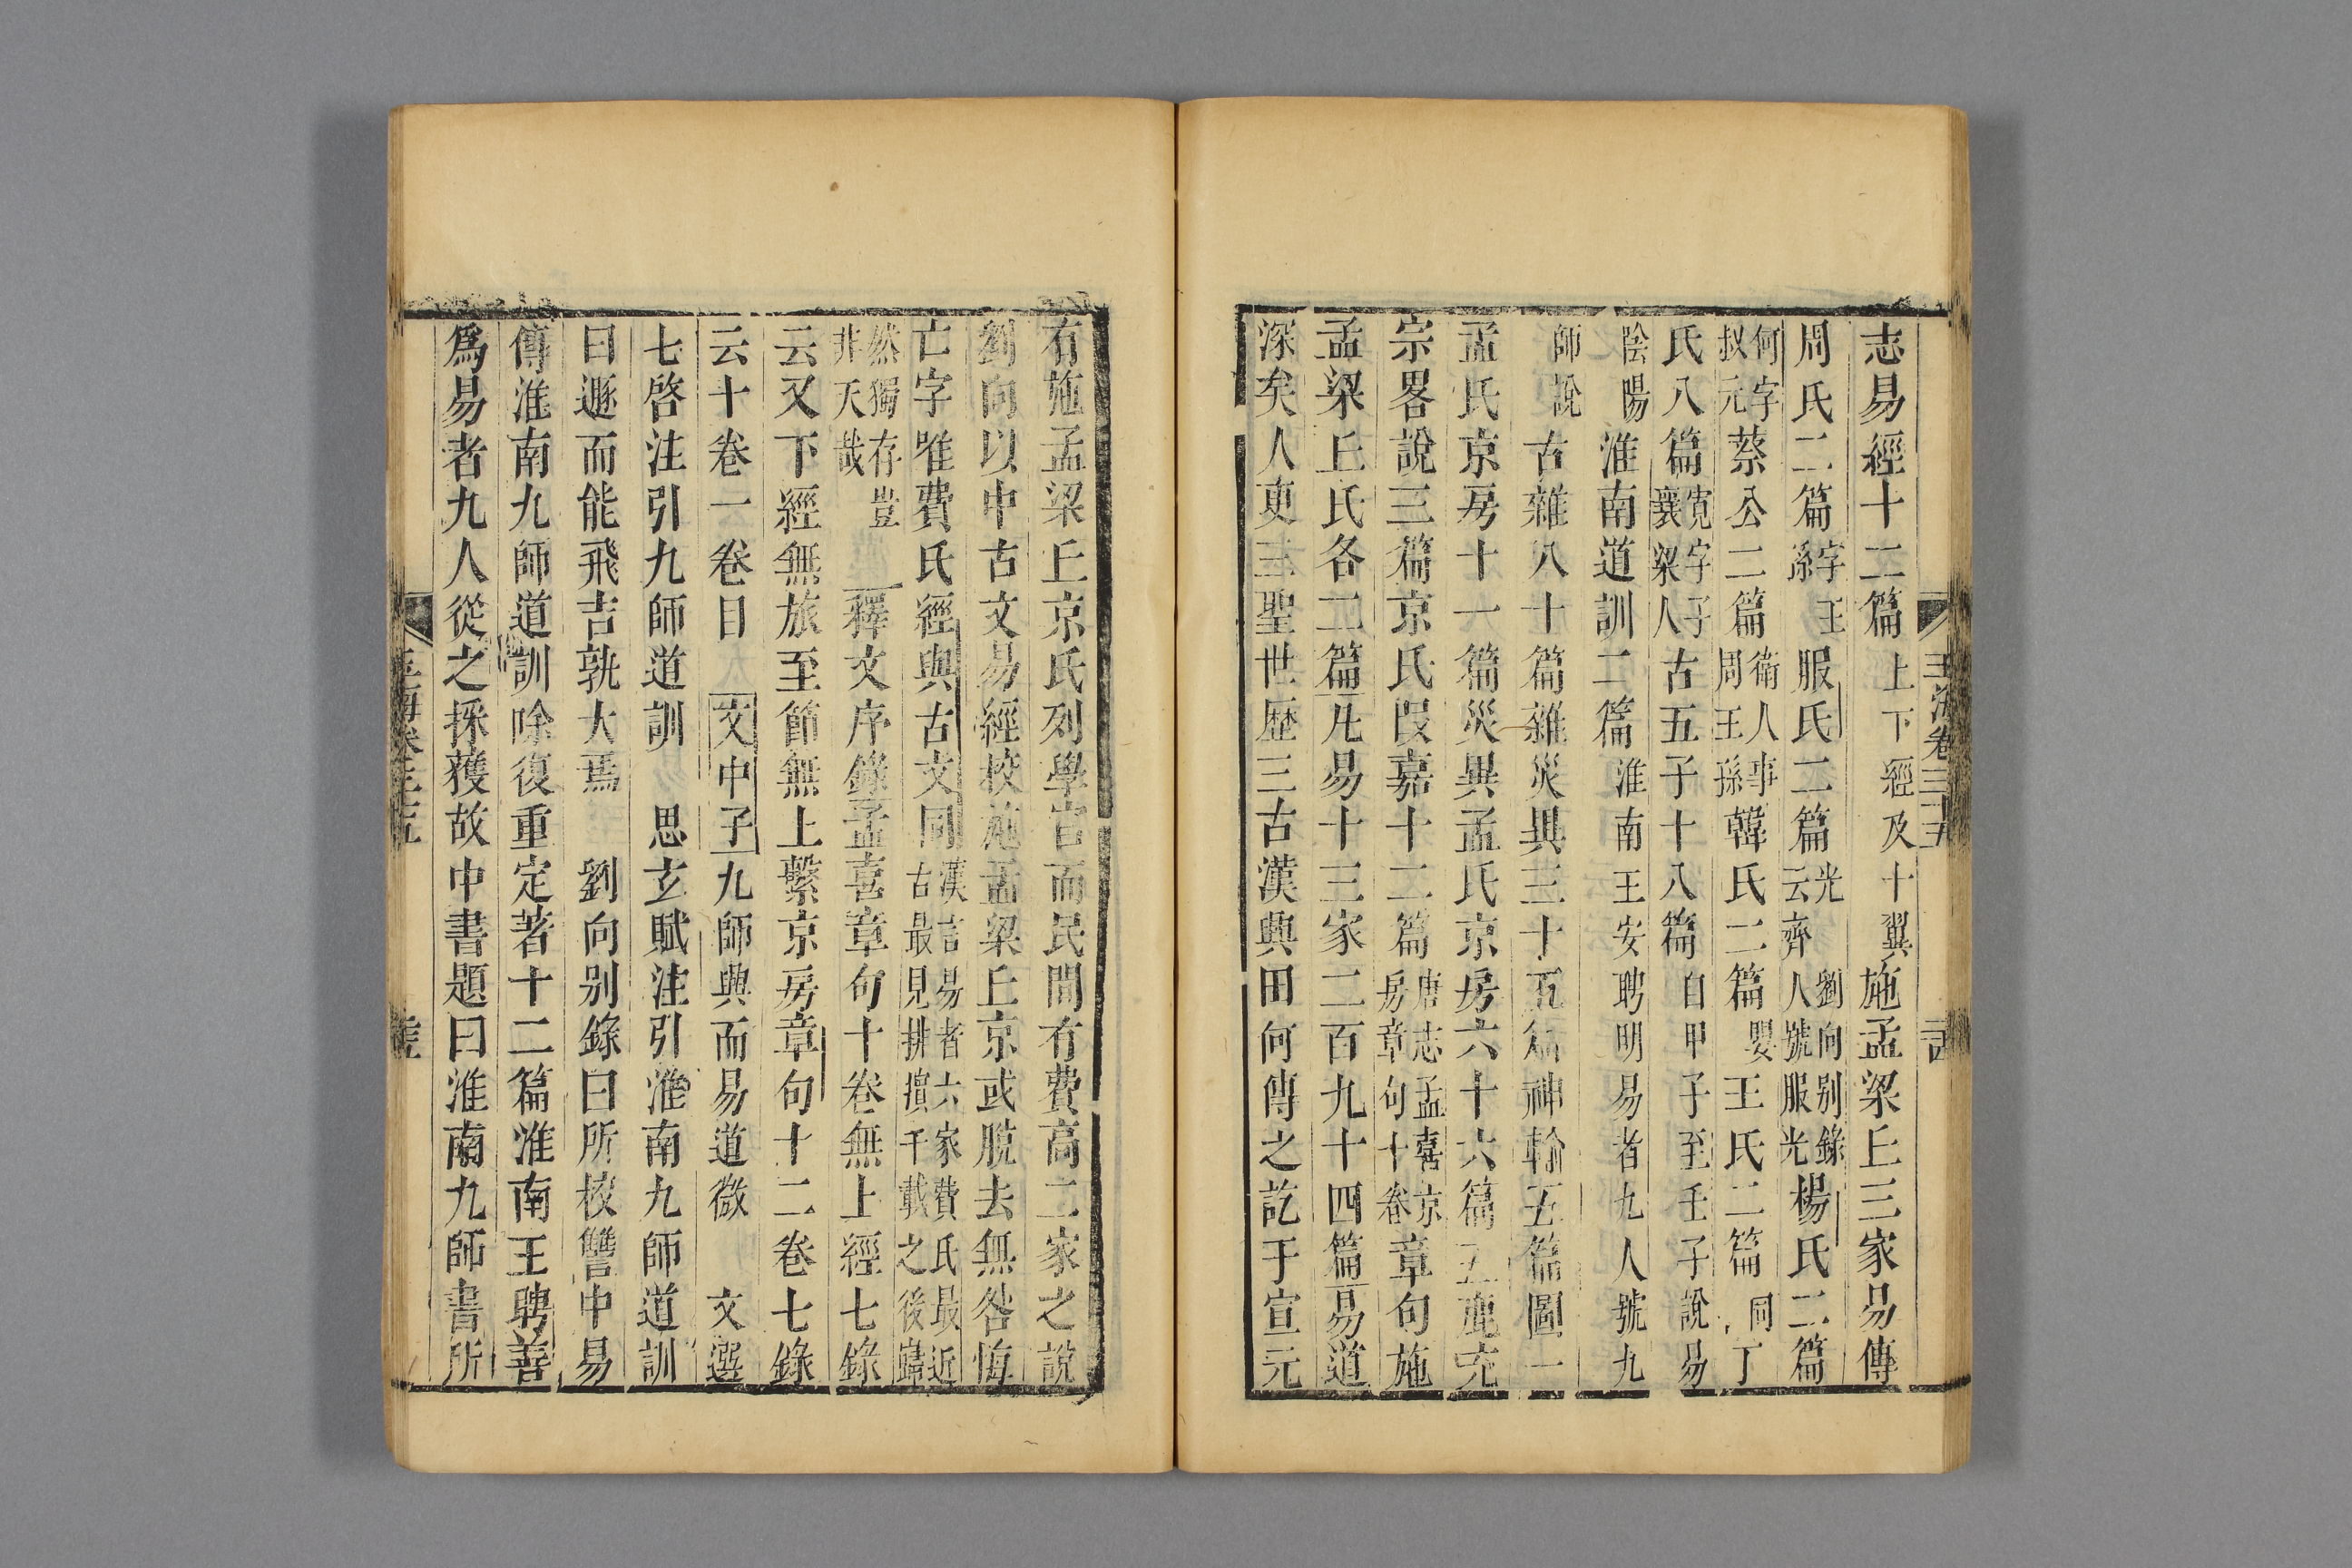 玉海卷三十五
志易經十二篇上下經及十翼施孟梁丘三家易傳
周氏二篇字王孫服氏二篇劉向别錄云齊人號服光楊氏二篇
何字叔元蔡公二篇衛人事周王孫韓氏二篇嬰王氏二篇同丁
氏八篇寬字子襄梁人古五子十八篇自甲子至壬子說易
陰陽淮南道訓二篇淮南王安聘明易者九人號九
師說古雜八十篇雜災異三十五篇神輸五篇圖一
孟氏京房十一篇災異孟氏京房六十六篇五鹿充
宗畧說三篇京氏叚嘉十二篇唐志孟喜京房章句十卷章句施
孟梁丘氏各二篇凡易十三家二百九十四篇易道
深矣人更三聖世歷三古漢興田何傳之訖于宣元
有施孟梁丘京氏列學官而民間有費高二家之說
劉向以中古文易經校施孟梁丘京或脫去無咎悔
亡字唯費氏經與古文同漢言易者六家費氏最近古最見排擯千載之後歸
然獨存豈非天哉釋文序錄孟喜章句十卷無上經七錄
云又下經無旅至節無上繫京房章句十二卷七錄
云十卷一卷目文中子九師興而易道微文選
七啓注引九師道訓思玄賦注引淮南九師道訓
曰遯而能飛吉孰大焉劉向别錄曰所校讐中易
傳淮南九師道訓除復重定著十二篇淮南王聘善
爲易者九人從之採獲故中書題曰淮南九師書所